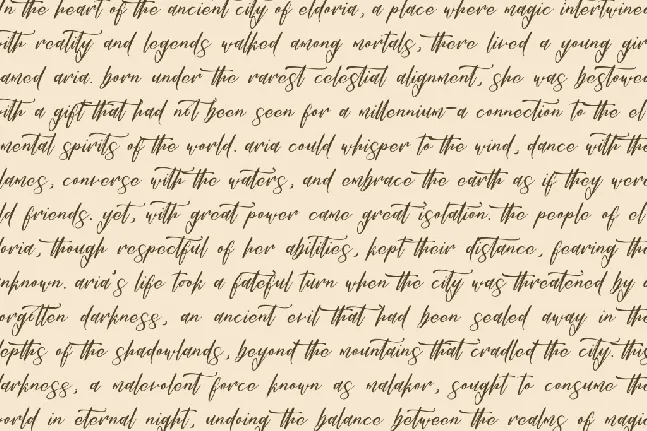 in the heart of the ancient city of eldoria, a place where magic intertwined
with reality and legends walked among mortals, there lived a young gir
amed aria. born under the rarest celestial alignment, she was bestowed
with a gift that had not been seen for a millennium—a connection to the el
mental spirits of the world. aria could whisper to the wind, dance with the
lames, converse with the waters, and embrace the earth as if they were
ld friends. yet, with great power came great isolation. the people of el
doria, though respectful of her abilities, kept their distance, fearing the
nknown. aria's life took a fateful turn when the city was threatened by a
orgotten darkness, an ancient evil that had been sealed away in the
depths of the shadowlands, beyond the mountains that cradled the city. this
darkness, a malevolent force known as malakor, sought to consume the
world in eternal night, undoing the balance between the realms of magic